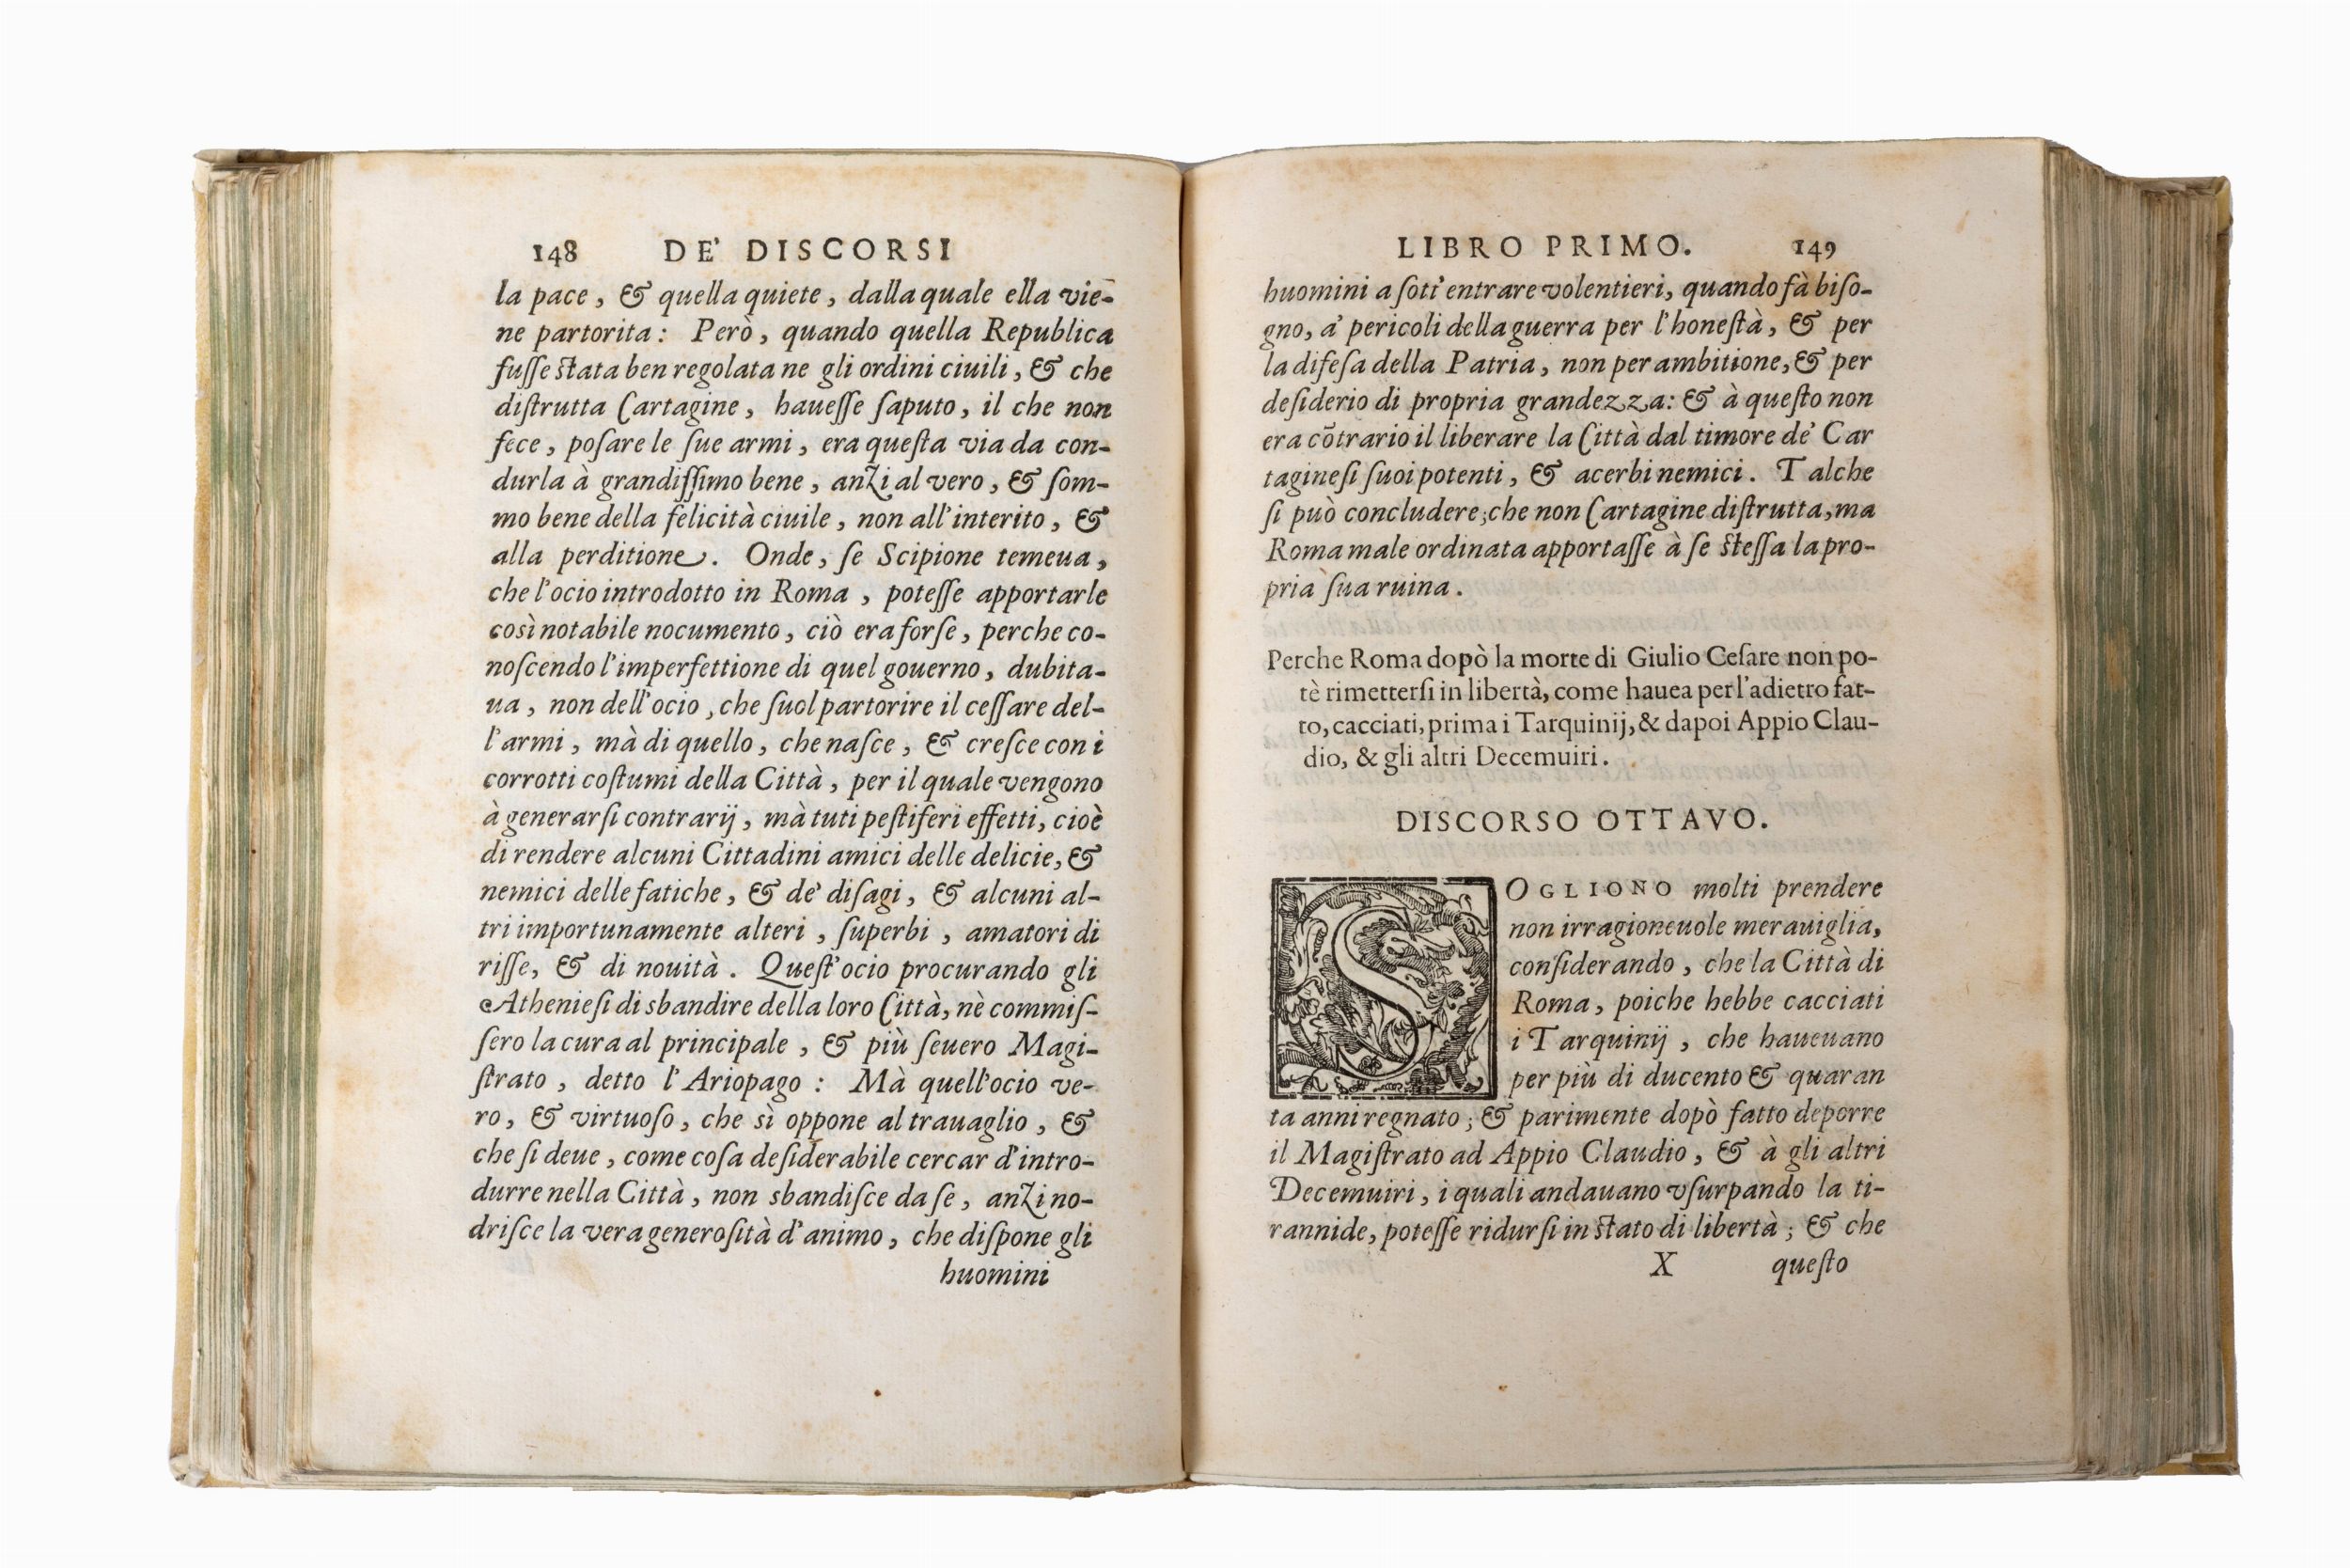 148 DE' DISCORSI
la pace, & quella quiete, dalla quale ella vie-
ne partorita: Però, quando quella Republica
fuſſe ſtata ben regolata ne gli ordini ciuili, & che
diſtrutta Cartagine, haueſſe ſaputo, il che non
fece, poſare le ſue armi, era queſta via da con-
durla à grandiſſimo bene, anzi al vero, & ſom-
mo bene della felicità ciuile, non all'interito, &
alla perditione. Onde, ſe Scipione temeua,
che l'ocio introdotto in Roma, poteſſe apportarle
così notabile nocumento, ciò era forſe, perche co-
noſcendo l'imperfettione di quel gouerno, dubita-
ua, non dell'ocio, che ſuol partorire il ceſſare del-
l'armi, mà di quello, che naſce, & creſce con i
corrotti coſtumi della Città, per il quale vengono
à generarſi contrarij, mà tuti peſtiferi effetti, cioè
di rendere alcuni Cittadini amici delle delicie, &
nemici delle fatiche, & de' diſagi, & alcuni al-
tri importunamente alteri, ſuperbi, amatori di
riſſe, & di nouità. Queſt'ocio procurando gli
Athenieſi di sbandire della loro Città, nè commiſ-
ſero la cura al principale, & più ſeuero Magi-
ſtrato, detto l'Ariopago: Mà quell'ocio ve-
ro, & virtuoſo, che sì oppone al trauaglio, &
che ſi deue, come coſa deſiderabile cercar d'intro-
durre nella Città, non sbandiſce da ſe, anzi no-
driſce la vera generoſità d'animo, che diſpone gli
huomini
LIBRO PRIMO. 149
huomini a ſott'entrare volentieri, quando fà biſo-
gno, a' pericoli della guerra per l'honeſtà, & per
la difeſa della Patria, non per ambitione, & per
deſiderio di propria grandezza: & à queſto non
era cōtrario il liberare la Città dal timore de' Car
tagineſi ſuoi potenti, & acerbi nemici. Talche
ſi può concludere; che non Cartagine diſtrutta, ma
Roma male ordinata apportaſſe à ſe ſteſſa la pro-
pria ſua ruina.
Perche Roma dopò la morte di Giulio Ceſare non po-
tè rimetterſi in libertà, come hauea per l'adietro fat-
to, cacciati, prima i Tarquinij, & dapoi Appio Clau-
dio, & gli altri Decemuiri.
DISCORSO OTTAVO.
SOGLIONO molti prendere
non irragioneuole merauiglia,
conſiderando, che la Città di
Roma, poiche hebbe cacciati
i Tarquinij, che haueuano
per più di ducento & quaran
ta anni regnato; & parimente dopò fatto deporre
il Magiſtrato ad Appio Claudio, & à gli altri
Decemuiri, i quali andauano vſurpando la ti-
rannide, poteſſe ridurſi in ſtato di libertà; & che
X queſto